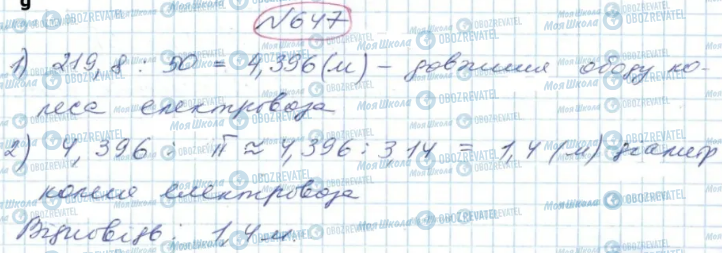 №647
1) 219,8 : 50 = 4,396 (м) – довжина ободу ко-
леса електровоза
2) 4,396 : π ≈ 4,396 : 3,14 = 1,4 (м) – діаметр
колеса електровоза
Відповідь: 1,4 м.